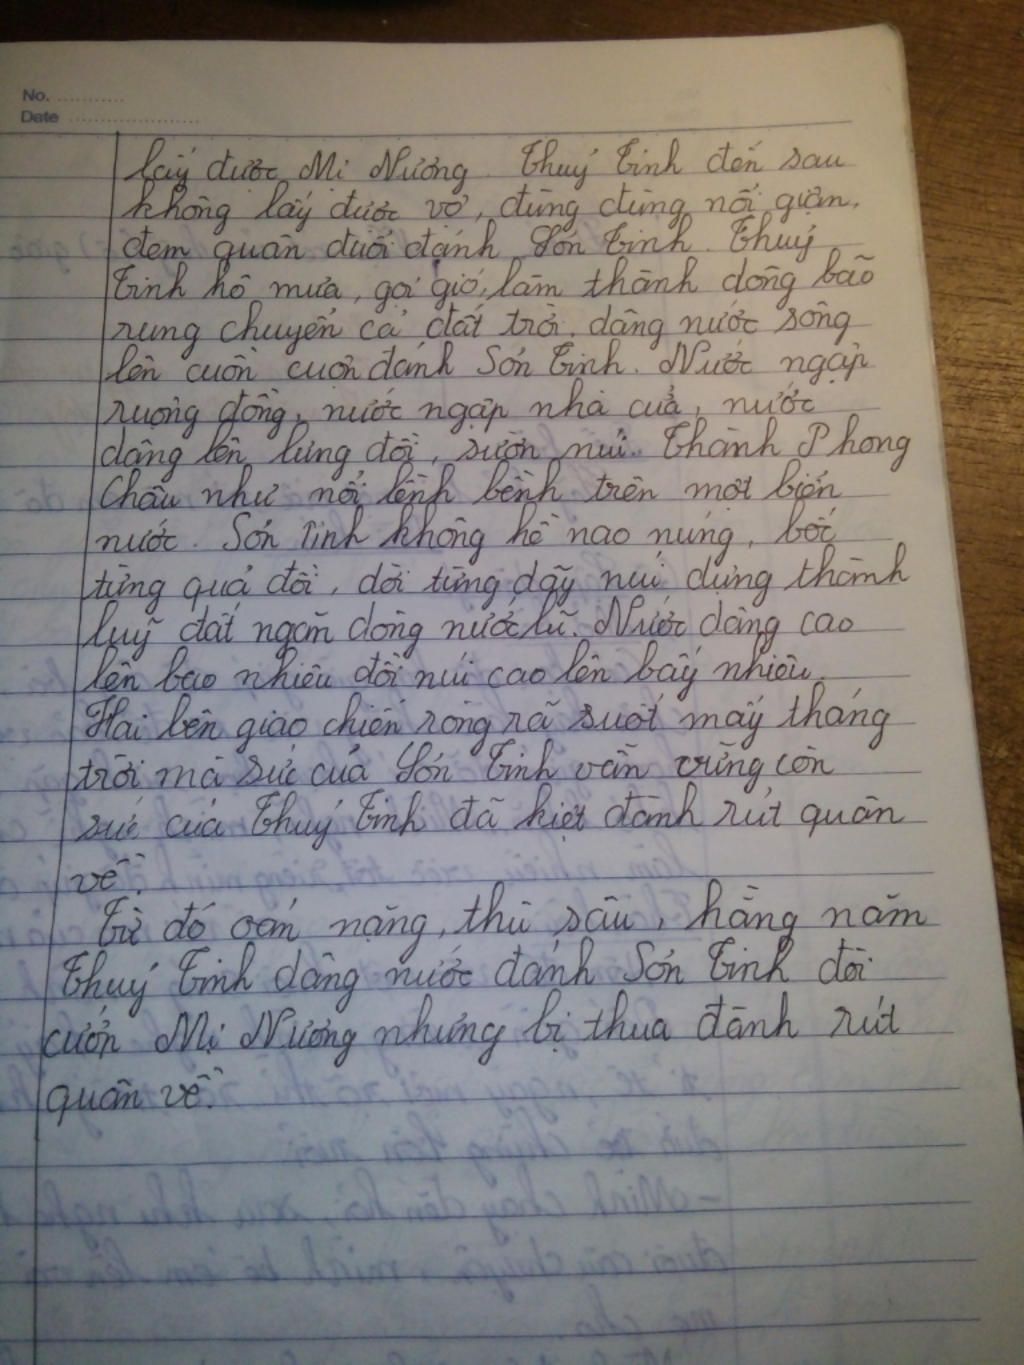 No. ............
Date ......................
lấy được Mị Nương. Thuỷ Tinh đến sau
không lấy được vợ, đùng đùng nổi giận,
đem quân đuổi đánh Sơn Tinh. Thuỷ
Tinh hô mưa, gọi gió, làm thành dông bão
rung chuyển cả đất trời, dâng nước sông
lên cuồn cuộn đánh Sơn Tinh. Nước ngập
ruộng đồng, nước ngập nhà cửa, nước
dâng lên lưng đồi, sườn núi. Thành Phong
Châu như nổi lềnh bềnh trên một biển
nước. Sơn Tinh không hề nao núng, bốc
từng quả đồi, dời từng dãy núi dựng thành
luỹ đất ngăn dòng nước lũ. Nước dâng cao
lên bao nhiêu đồi núi cao lên bấy nhiêu.
Hai bên giao chiến ròng rã suốt mấy tháng
trời mà sức của Sơn Tinh vẫn vững còn
sức của Thuỷ Tinh đã kiệt đành rút quân
về.
Từ đó oán nặng, thù sâu, hằng năm
Thuỷ Tinh dâng nước đánh Sơn Tinh đòi
cướp Mị Nương nhưng bị thua đành rút
quân về.